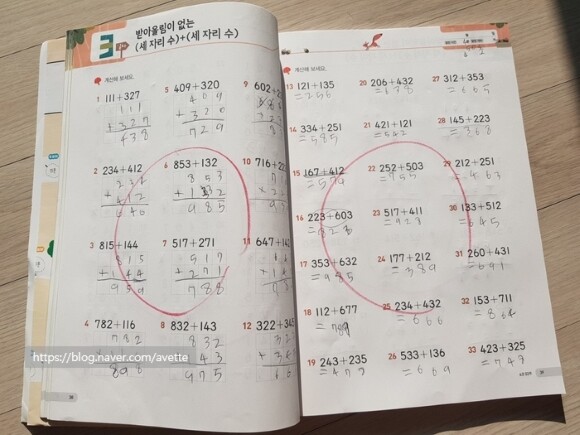 3
받아올림이 없는
(세 자리 수)+(세 자리 수)
계산해 보세요.
1 111+327
111
+327
438
2 234+412
+412
646
3 815+144
815
+144
959
4 782+116
782
898
5 409+320
409
+320
729
6 853+132
853
+132
985
7 517+271
517
+271
788
8 832+143
832
43
975
9 602+2
10 716+22
11 647+14
12 322+345
계산해 보세요.
13 121+135
=256
14 334+251
=585
15 167+412
=579
16 223+603
=826
17 353+632
=985
18 112+677
=789
19 243+235
=478
20 206+432
=638
21 421+121
=542
22 252+503
=755
23 517+411
=928
24 177+212
=389
25 234+432
=666
26 533+136
=669
27 312+353
=665
28 145+223
=368
29 212+251
=463
30 133+512
=645
31 260+431
=691
32 153+711
=864
33 423+325
=748
https://blog.naver.com/avette